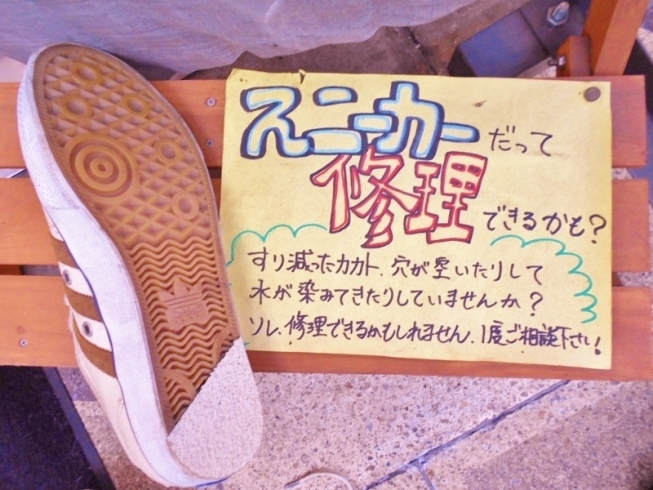 スニーカーだって
修理できるかも?
すり減ったカカト、穴が空いたりして
水が染みてきたりしていませんか?
ソレ、修理できるかもしれません、1度ご相談下さい!